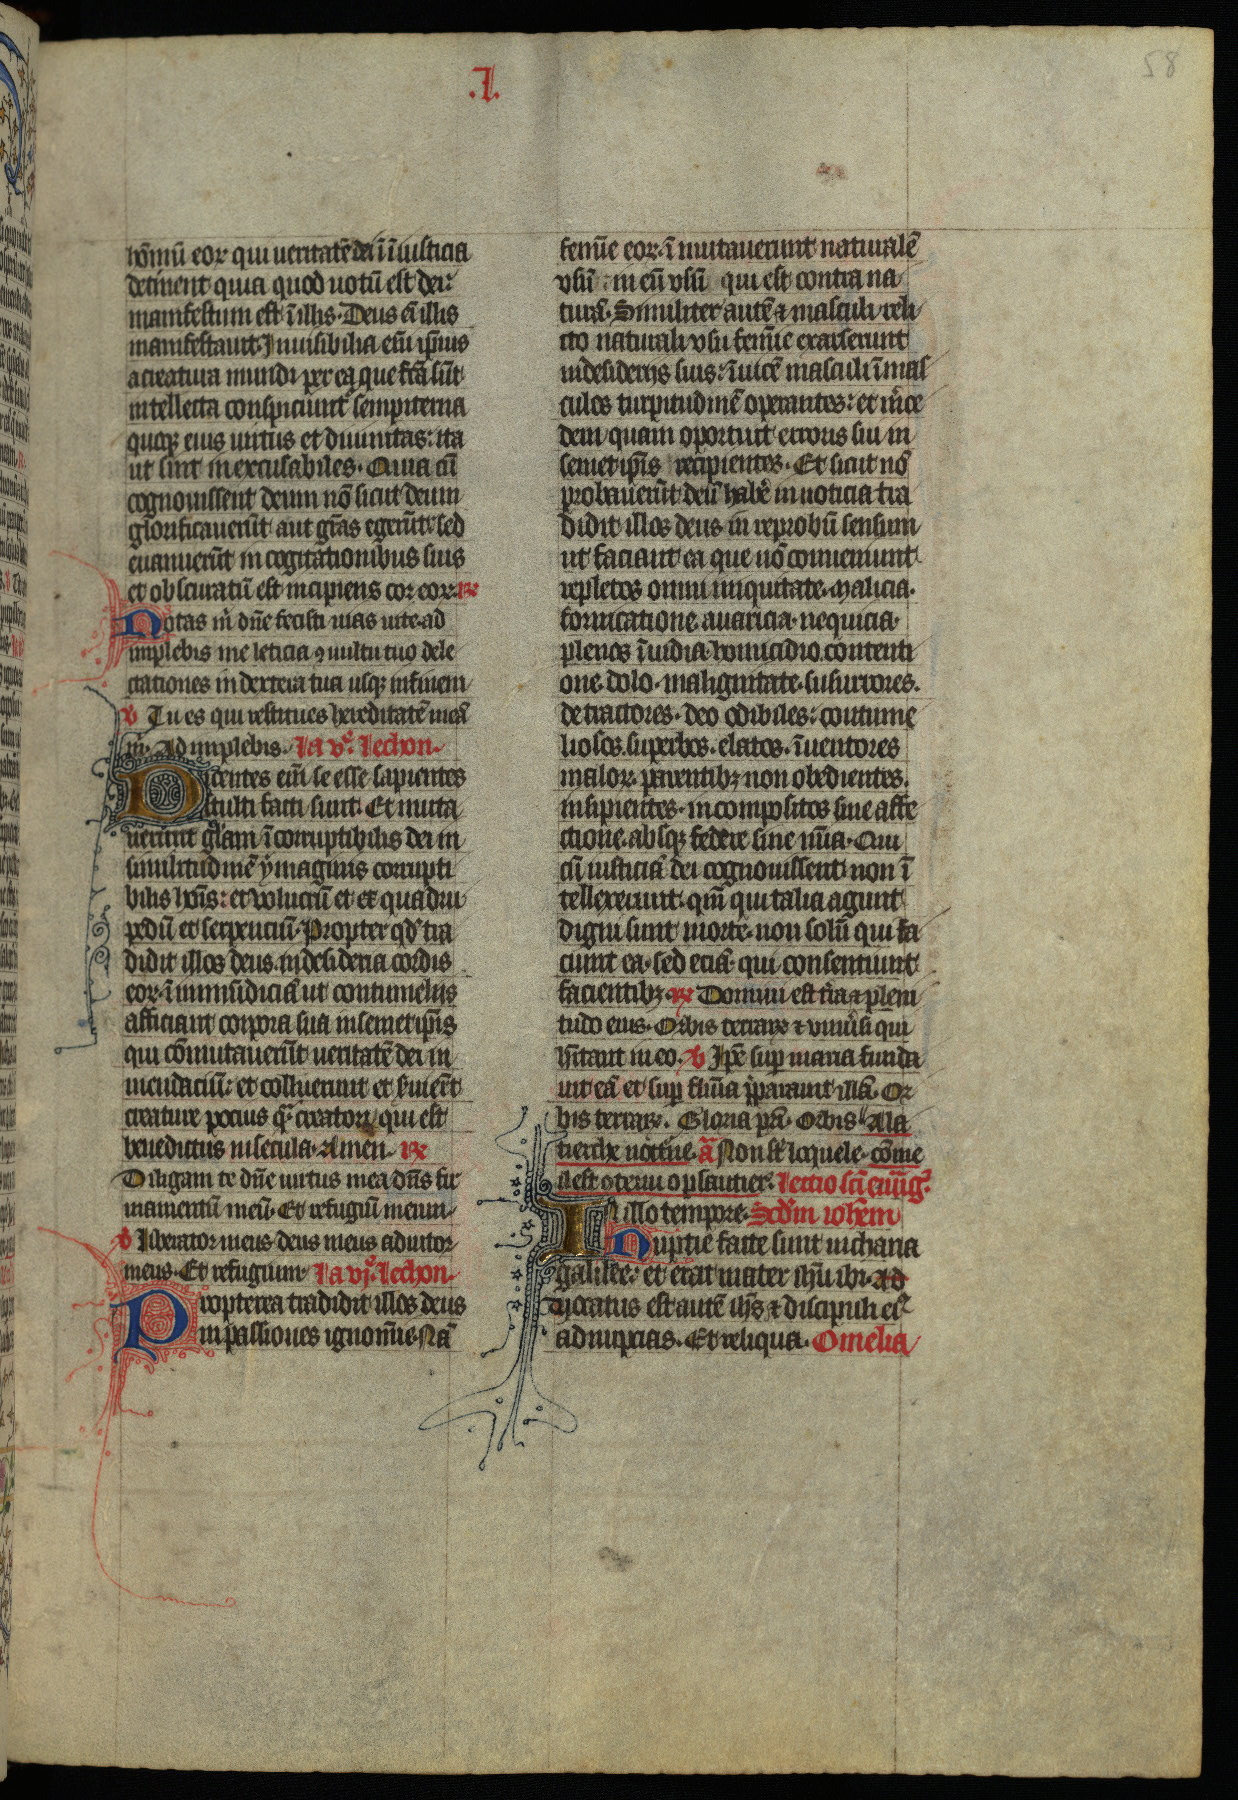 .I.
58
hōmū eor qui ueritatē dei ī iusticia
detinent quia quod notū est dei:
manifestum est ī illis. Deus ēi illis
manifestauit. Inuisibilia eni ipsius
acreatura mundi per ea que fca sūt
intellecta conspiciunt sempiterna
quoqꝫ eius uirtus et diuinitas: ita
ut sint inexcusabiles. Quia cū
cognouissent deum nō sicut deum
glorificauerūt aut grās egerūt sed
euanuerūt in cogitationibus suis
et obscuratū est incipiens cor eor. R̷
Notas m̄ dn̄e fecisti uias uite ad
implebis me leticia ꝯ uultu tuo dele
ctationes in dextera tua usqꝫ infinem
V Tu es qui restitues hereditatē meā
m̄. Ad implebis. la v. lechon
Dicentes eni se esse sapientes
stulti facti sunt. Et muta
uerunt gl̄am ī corruptibilis dei in
similitudinē ymaginis corrupti
bilis hoīs: et volucrū et et quadru
pedū et serpenciū. Propter qd tra
didit illos deus in desideria cordis
eor. ī inmūdiciā ut contumeliis
afficiant corpora sua in semet ip̄is
qui cōmutauerūt ueritatē dei in
mendaciū: et coluerunt et suierūt
creature pocius qͣ creatori qui est
benedictus in secula. Amen. R̷
Diligam te dn̄e uirtus mea dn̄s fir
mamentū meū. Et refugiū meum
V Liberator meus deus meus adiutor
meus. Et refugium la vj. lechon
Propterea tradidit illos deus
in passiones ignomīe. Nā
femīe eor. ī mutauerunt naturalē
vsū in eū vsū qui est contra na
turā. Similiter autē ⁊ masculi reli
cto naturali vsu femīe exarserunt
indesiderijs suis: īuicē masculi ī mas
culos turpitudinē operantes: et m̄ce
dem quam oportuit erroris sui in
semet ip̄is recipientes. Et sicut nō
probauerūt deū habē in noticia tra
didit illos deus in reprobū sensum
ut faciant ea que nō conueniunt
repletos omni iniquitate. malicia.
fornicatione. auaricia. nequicia.
plenos īuidia. homicidio. contenti
one. dolo. malignitate. susurrores.
detractores. deo odibiles: contume
liosos. superbos. elatos. īuentores
malor. parentibꝫ non obedientes.
insipientes. incompositos sine affe
ctione. absqꝫ federe sine mīa. Qui
cū iusticiā dei cognouissent non ī
tellexerunt. qm̄ qui talia agunt
digni sunt morte. non solū qui fa
ciunt ea. sed eciā qui consentiunt
facientibꝫ. R̷ Domini est tr̄a ⁊ pleni
tudo eius. Orbis terrarꝫ ⁊ vniūsi qui
hītant in eo. V Ipē sup maria funda
uit eā et sup flūīa p̄parauit illā. Or
bis terrarꝫ. Gloria pr̄i. Orbis. Ala
tierche noctne. ā Non st loquele. cōme
il est otenu o psautier. lectio scī euuāg.
In illo tempore. Scdm iohēm
Nuptie facte sunt in chana
galilee: et erat mater ihū ibi. Ad
Uocatus est autē ihs ⁊ discipuli eiꝰ
ad nupcias. Et reliqua. Omelia